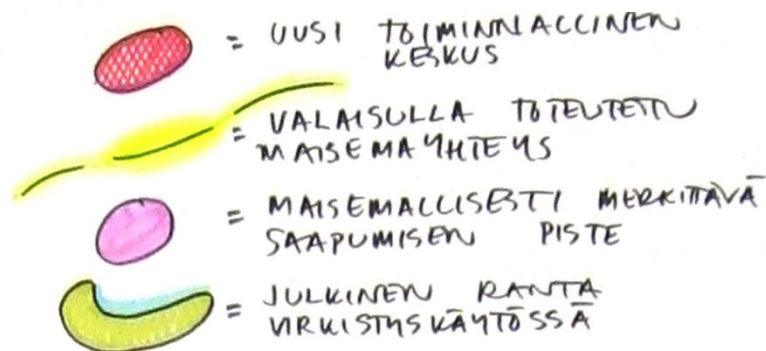 = UUSI TOIMINNALLINEN
KESKUS
= VALAISULLA TOTEUTETTU
MAISEMAYHTEYS
= MAISEMALLISESTI MERKITTÄVÄ
SAAPUMISEN PISTE
= JULKINEN RANTA
VIRKISTYSKÄYTÖSSÄ